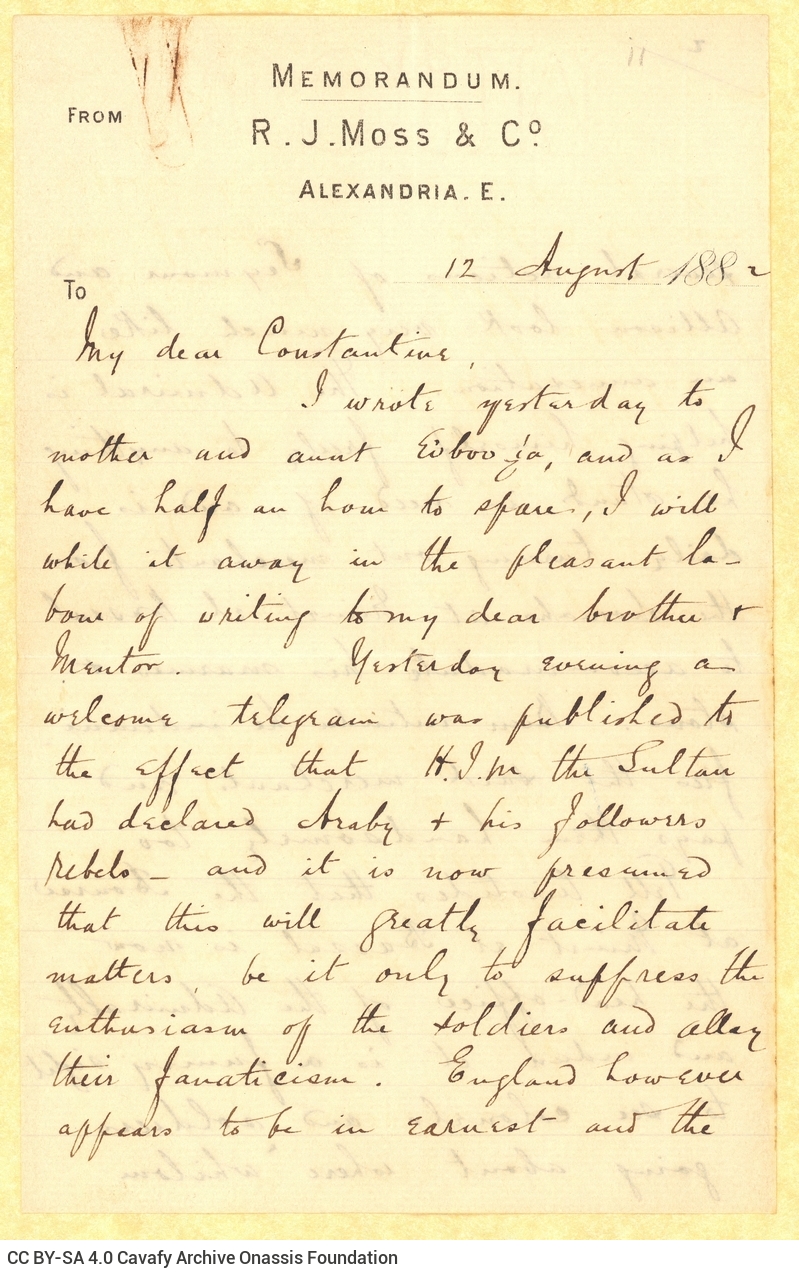 MEMORANDUM.
FROM
R. J. MOSS & Co.
ALEXANDRIA. E.
12 August 1882
To
My dear Constantine,
I wrote yesterday to
mother and aunt and as I
have half an hour to spare, I will
while it away in the pleasant la-
bour of writing to my dear brother +
Mentor. Yesterday evening a
welcome telegram was published to
the effect that H.I.M the Sultan
had declared Araby + his followers
rebels – and it is now presumed
that this will greatly facilitate
matters, be it only to suppress the
enthusiasm of the soldiers and allay
their fanaticism. England however
appears to be in earnest and the
CC BY-SA 4.0 Cavafy Archive Onassis Foundation